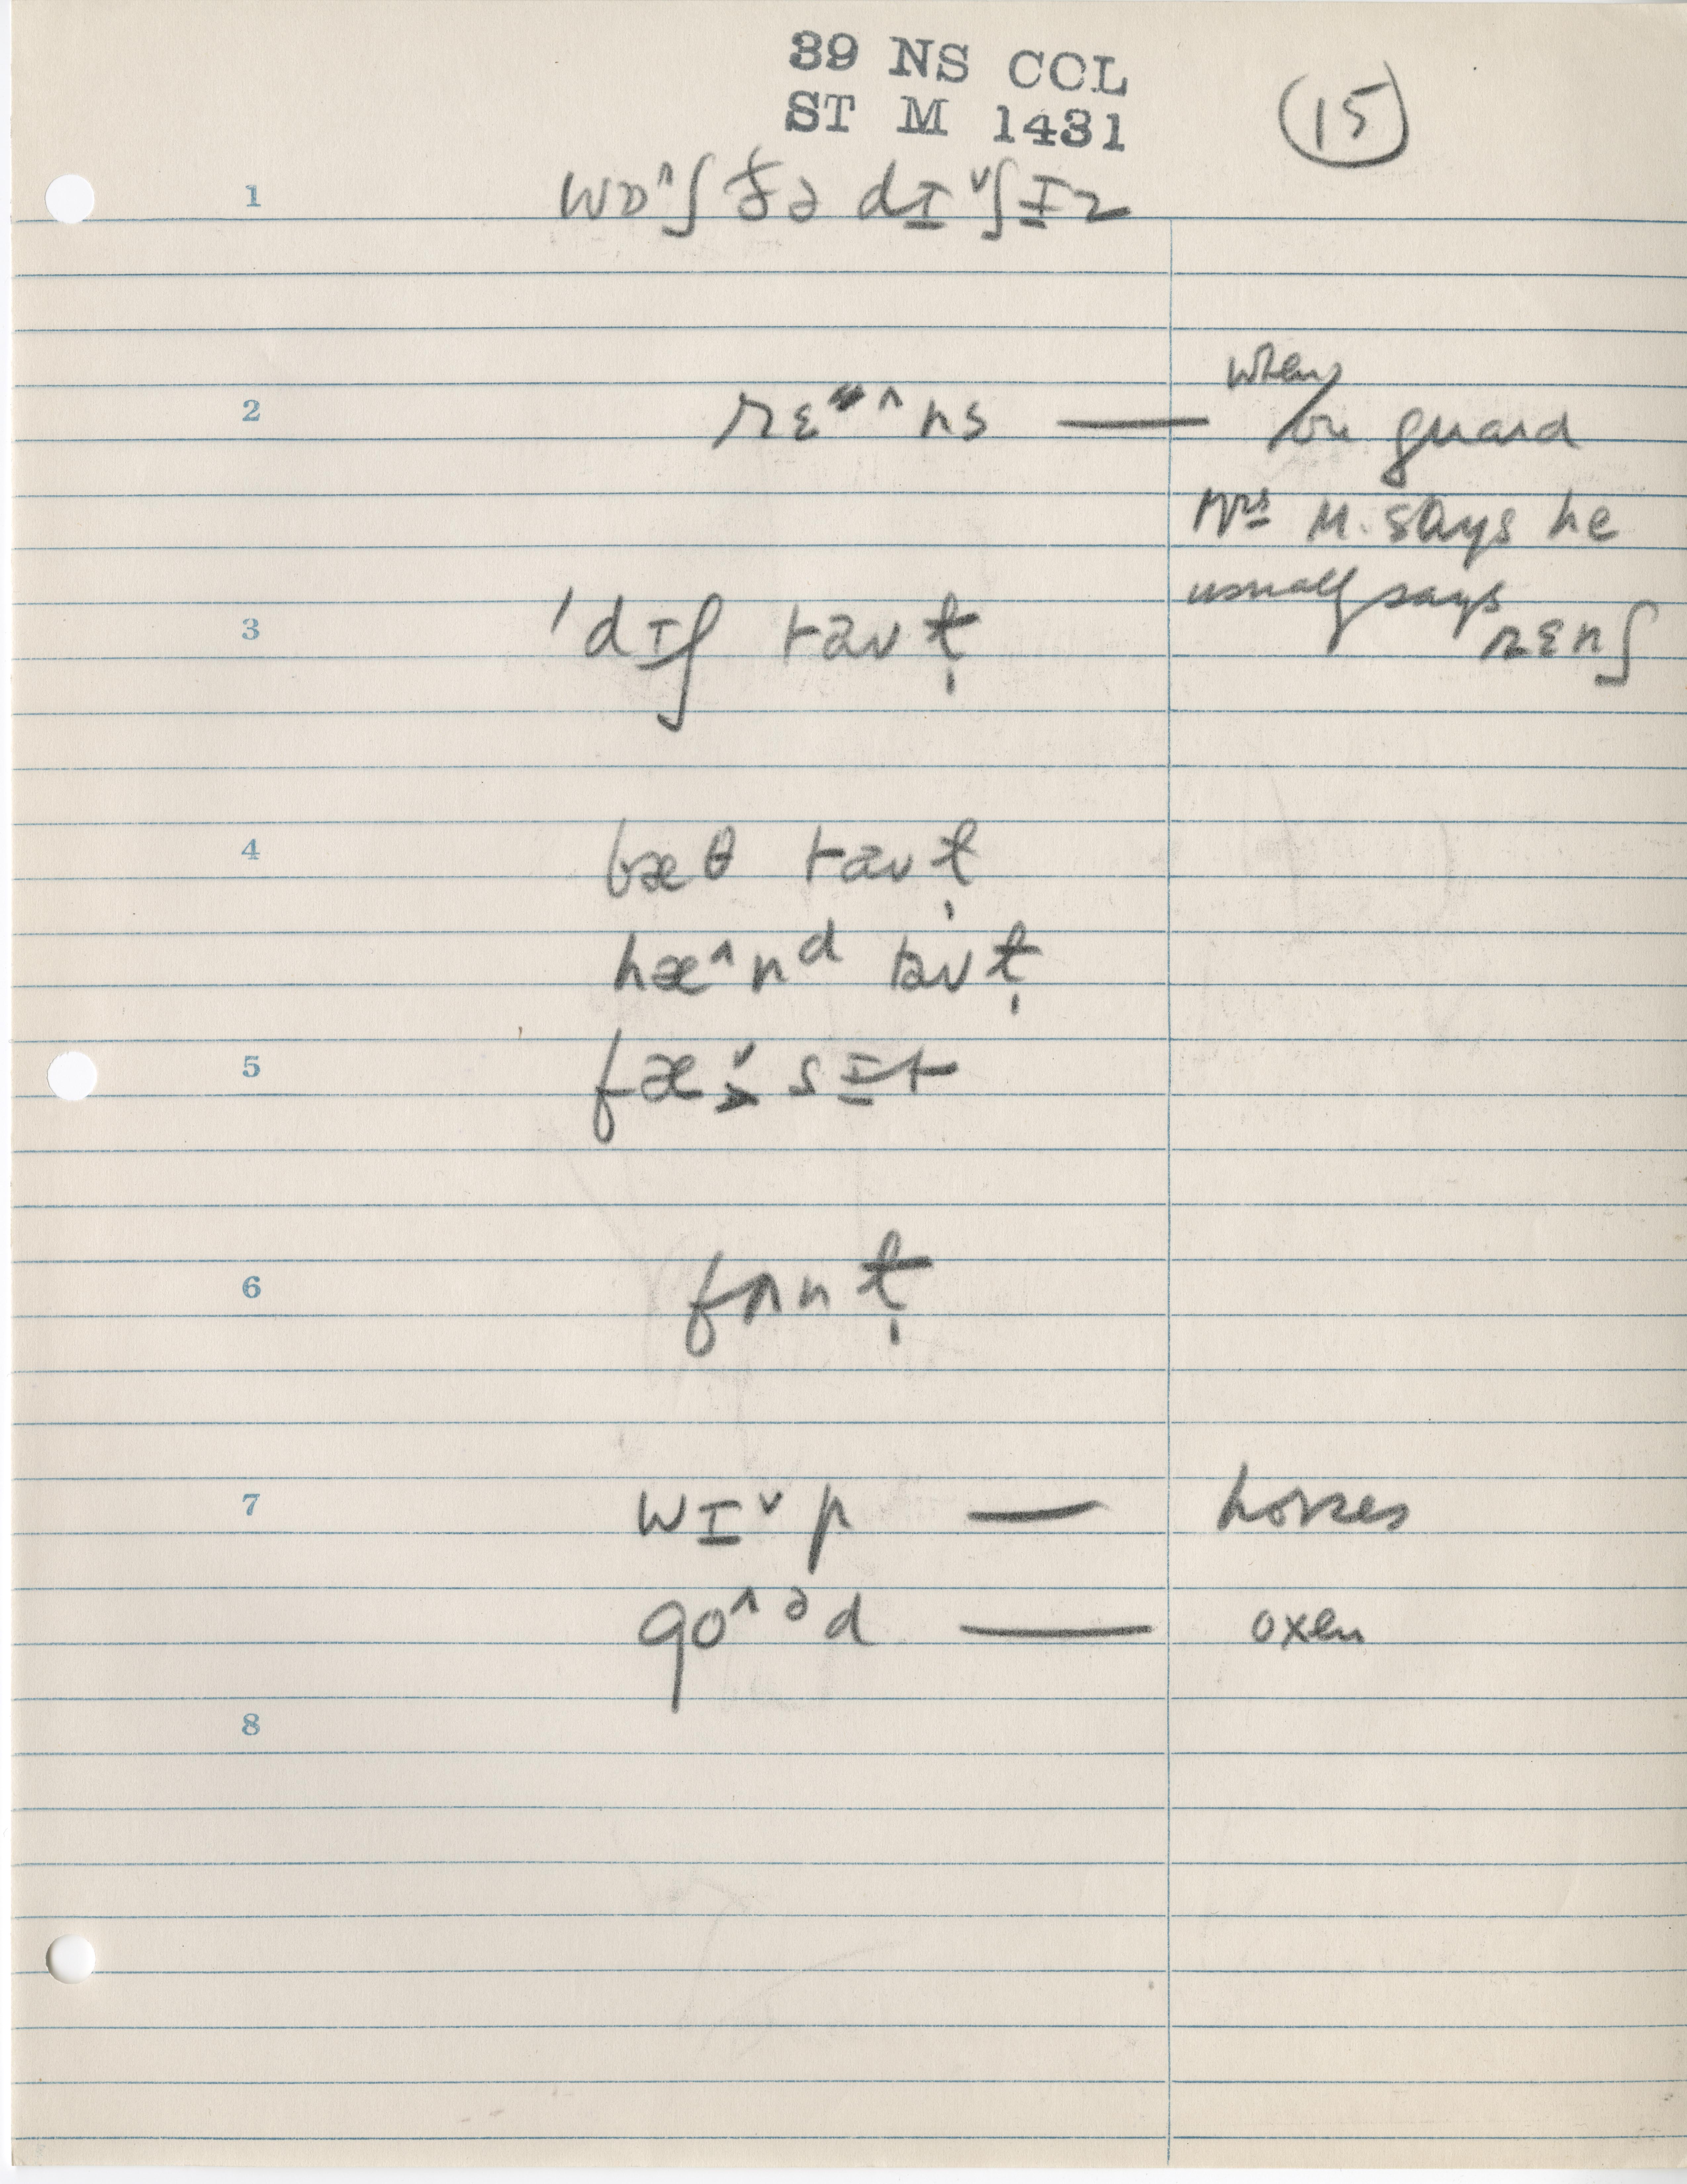 39 NS COL
ST M 1431
(15)
1 wɒ^ʃ ðə dɪ̱ˇʃɪ̱z
2 rɛ^ns — when
on guard
Mrs M. says he
usually says
rɛnʃ
3 'dɪʃ taʊt̬
4 bæθ taʊt̬
hæ^nᵈ taʊt̬
5 fæˇsɪ̱t
6 fʌnt̬
7 wɪ̱ˇp — horses
go^ᵊd — oxen
8